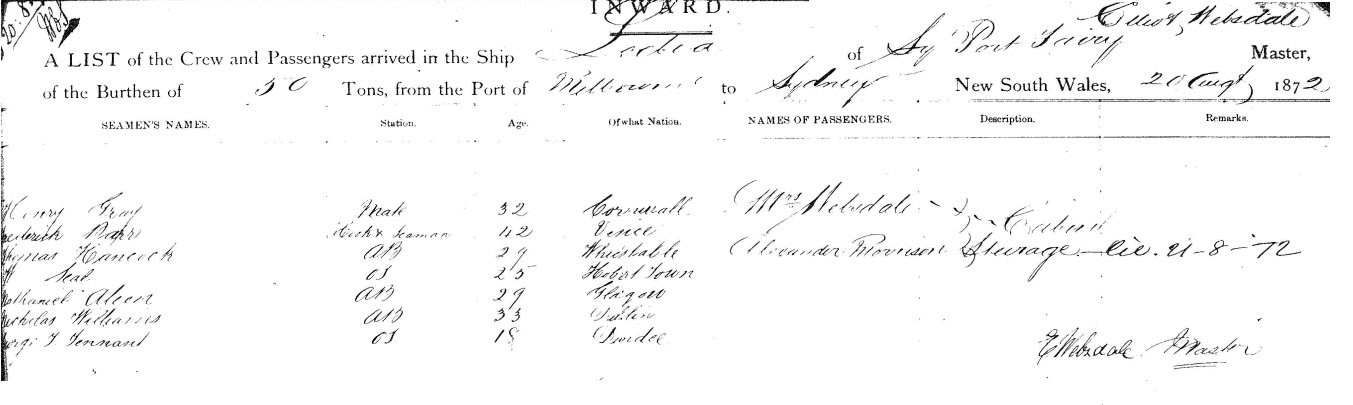 INWARD.
Elliot Websdale
A LIST of the Crew and Passengers arrived in the Ship of Sy Port Fairy Master,
of the Burthen of 50 Tons, from the Port of Melbourne to Sydney New South Wales, 20 Augt 1872
SEAMEN'S NAMES. Station. Age. Of what Nation. NAMES OF PASSENGERS. Description. Remarks.
Henry Gray Mate 32 Cornwall Mrs Websdale
Frederick 42 Venice
Thomas Hancock AB 29 Whitstable Alexander Morrison Steerage 21-8-72
OS 25 Hobart Town
Nathaniel AB 29 Glasgow
Nicholas Williams AB 33 Dublin
T Tennant OS 18 Dundee
E Websdale Master